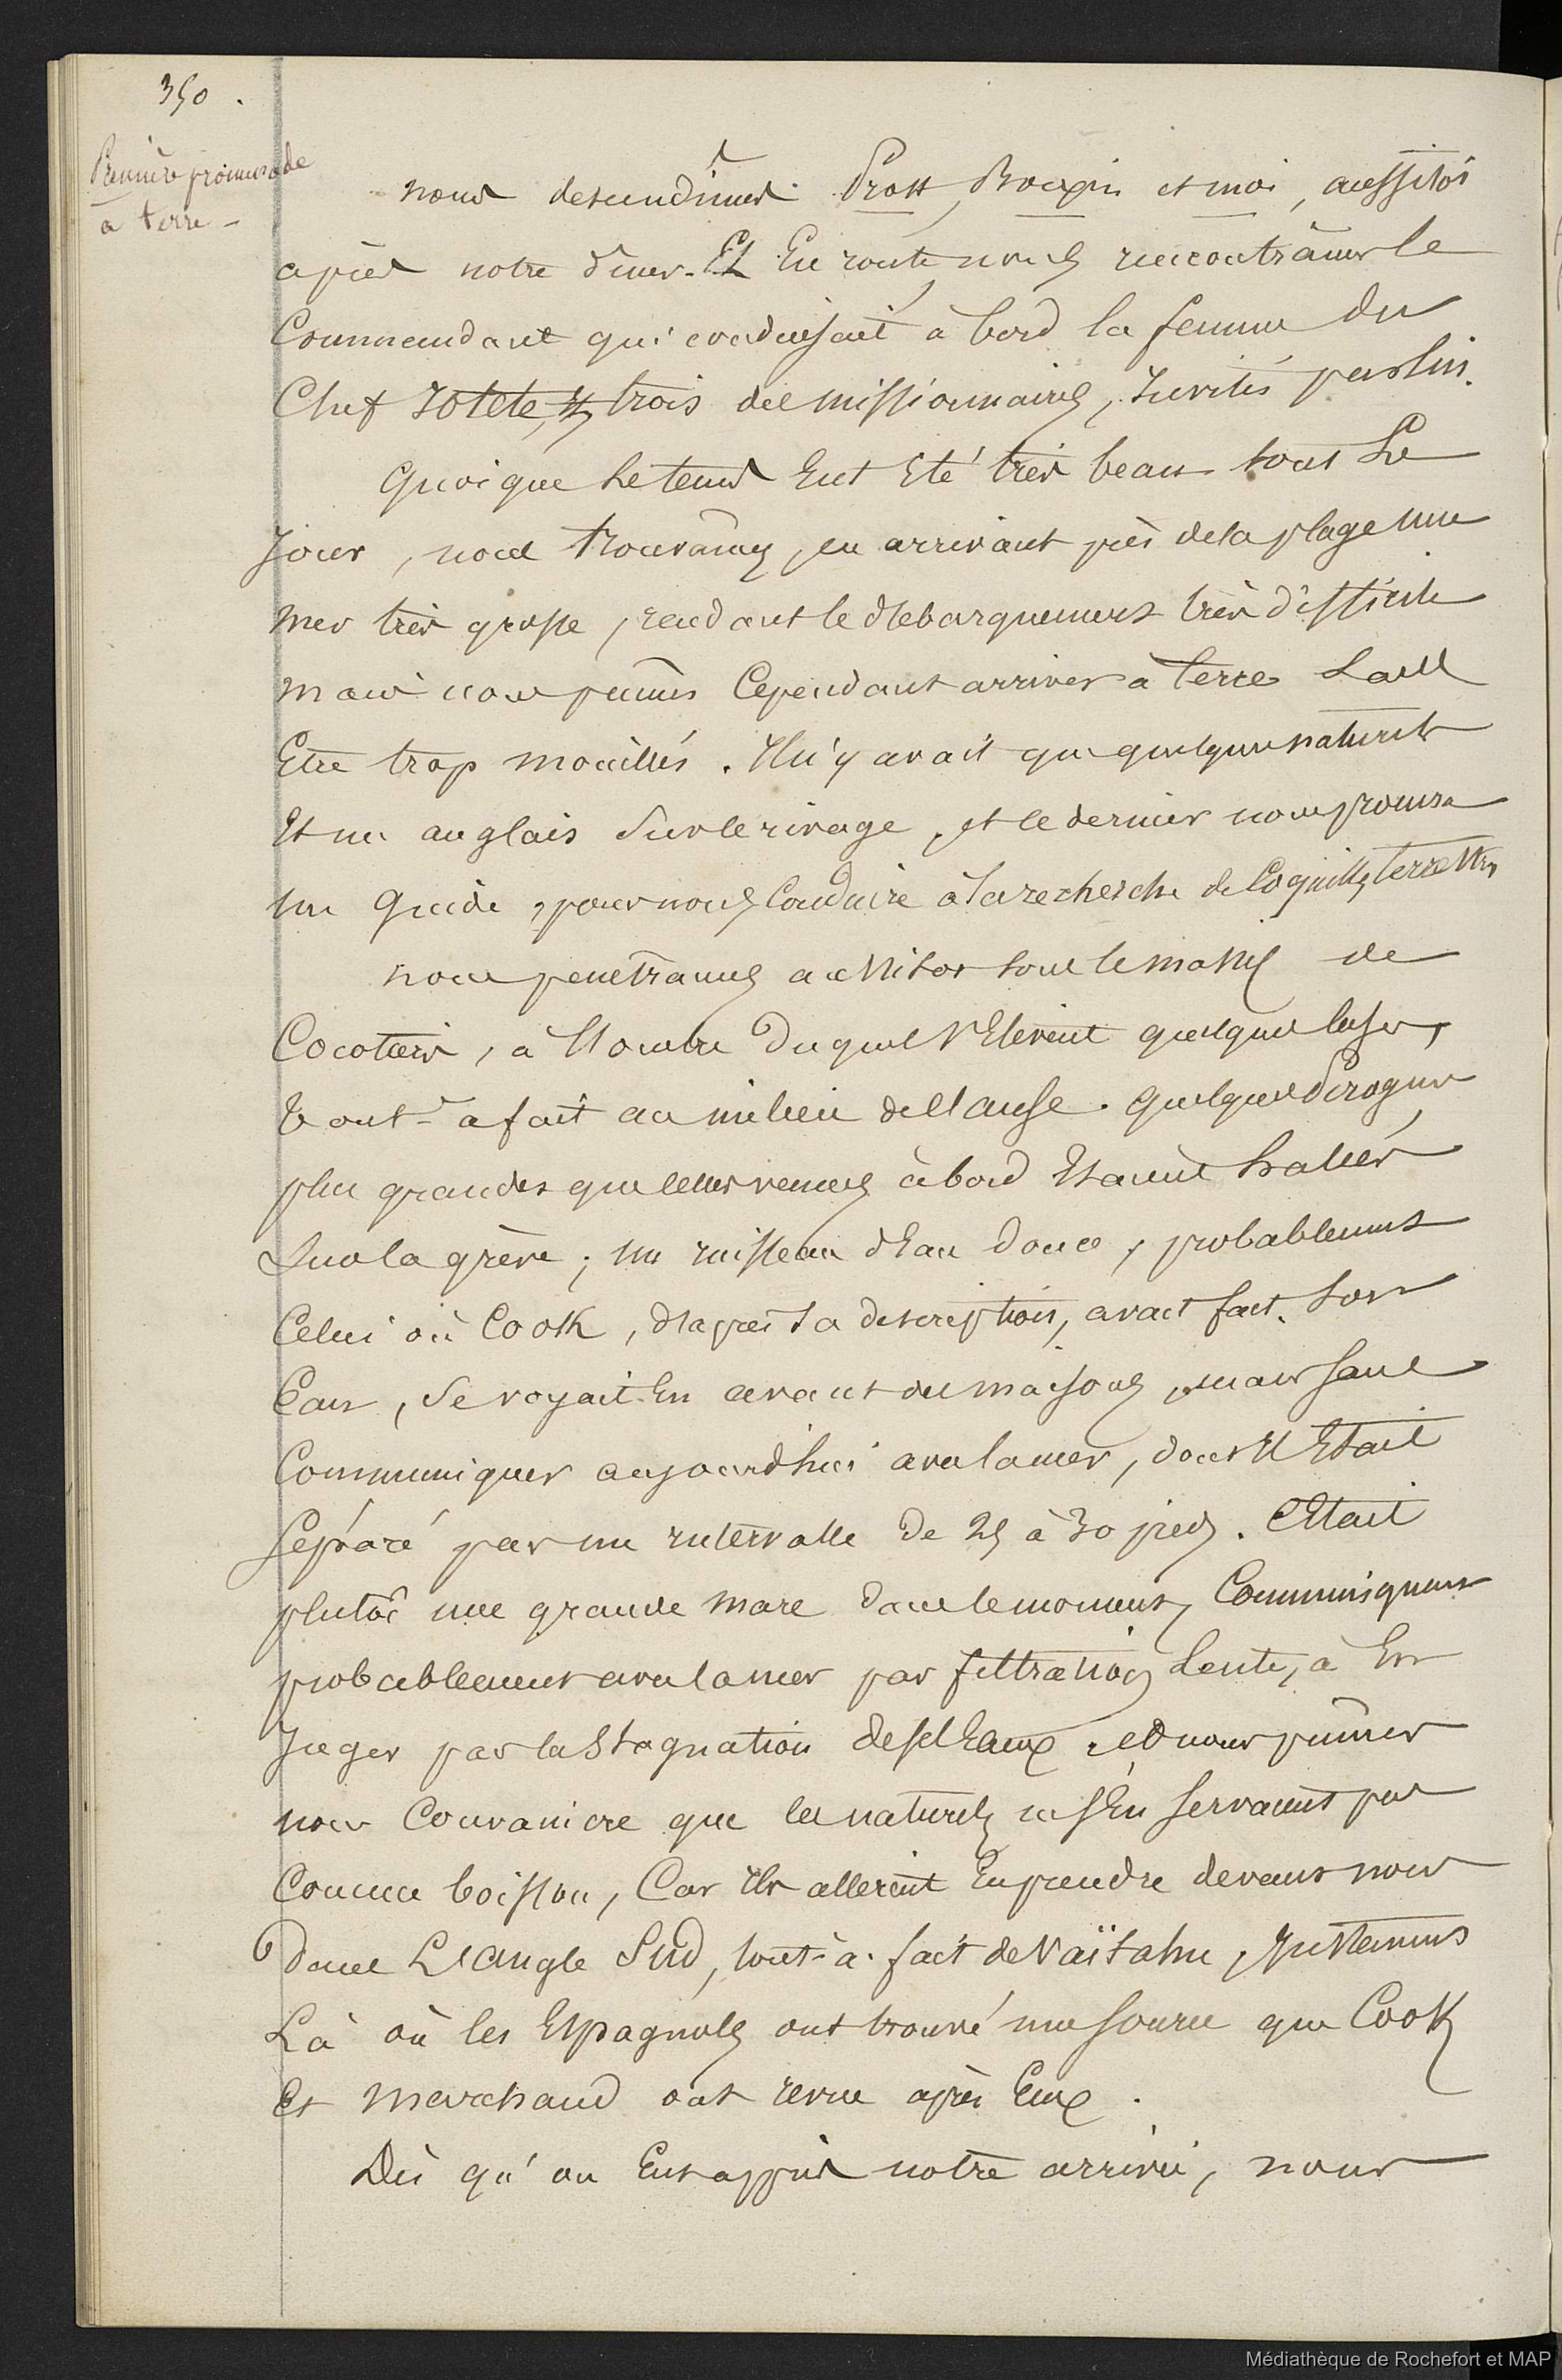 350.
Première promenade
à terre -
nous descendîmes Prost, et moi, aussitôt
après notre diner. Et En route, nous rencontrâmes le
Commandant qui conduisait à bord la femme du
Chef Iotete, et trois des missionnaires, Invités par lui.
Quoique le tems Eut Eté très beau tout Le
Jour, nous trouvâmes, en arrivant près de la plage une
mer très grosse, rendant le debarquement très difficile
mais nous pumes Cependant arriver à terre Sans
Etre trop mouillés. Il n'y avait que quelques naturels
Et un anglais Sur le rivage, et ce dernier nous procura
un Guide, pour nous Conduire à la recherche de Coquilles terrestres
nous penetrames aussitot sous le massif de
Cocotiers, à l'Ombre Duquel s'Elevent quelques cases,
tout-à fait au milieu de l'anse. quelques Pirogues
plus grandes que celles venues à bord Etaient hallées
Sur la grève ; un ruisseau d'Eau Douce, probablement
Celui où Cook, d'après sa description, avait fait son
Eau, Se voyait En avant des maisons, mais sans
Communiquer aujourd'hui avec la mer, dont Il Etait
Séparé par un intervalle de 25 à 30 pieds. C'Etait
plutôt une grande mare dans le moment, Communiquant
probablement avec la mer par filtration lente, à En
Juger par la Stagnation de ses Eaux. et nous pûmes
nous Convaincre que les naturels ne s'En servaient pas
Comme boisson, Car Ils allerent En prendre devant nous
dans L'angle Sud, tout-à-fait de Vaïtahu, Justement
Là où les Espagnols ont trouvé une source que Cook
Et Marchand ont revue après Eux.
Dès qu'on Eut appris notre arrivée, nous
Médiathèque de Rochefort et MAP